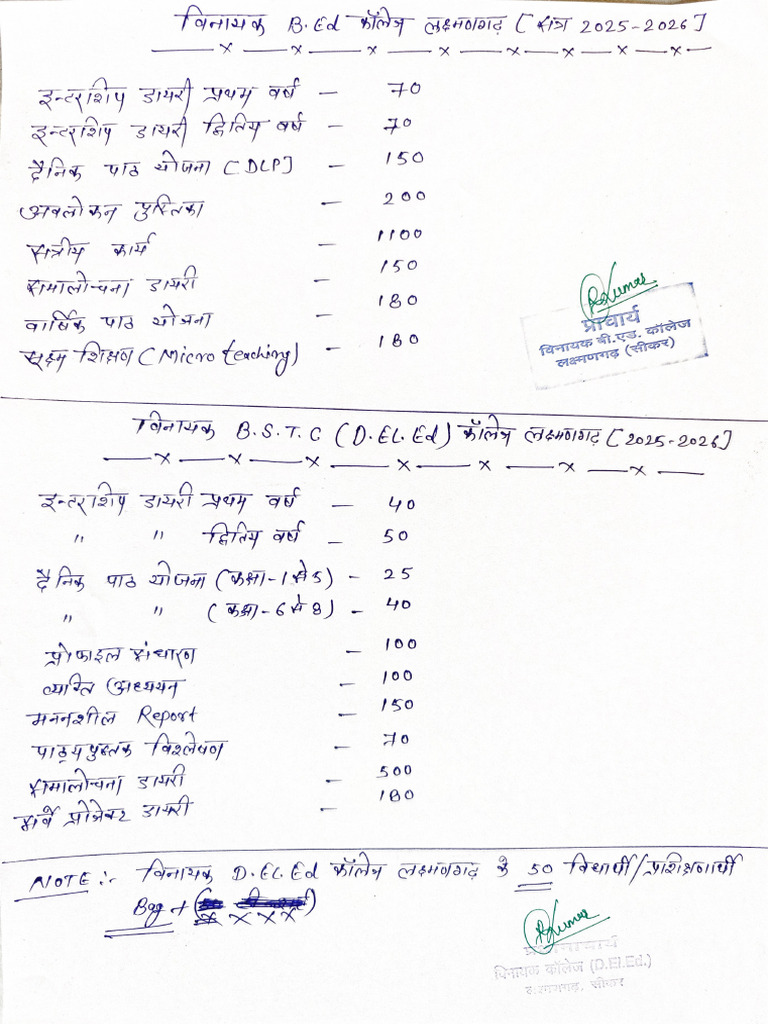 विनायक B.Ed कॉलेज लक्ष्मणगढ़ [सत्र 2025-2026]
इन्टरशिप डायरी प्रथम वर्ष — 70
इन्टरशिप डायरी द्वितिय वर्ष — 70
दैनिक पाठ योजना [DLP] — 150
अवलोकन पुस्तिका — 200
सत्रीय कार्य — 1100
समालोचना डायरी — 150
वार्षिक पाठ योजना — 180
सूक्ष्म शिक्षण (Micro teaching) — 180
RKumar
प्राचार्य
विनायक बी.एड. कॉलेज
लक्ष्मणगढ़ (सीकर)
विनायक B.S.T.C (D.El.Ed) कॉलेज लक्ष्मणगढ़ [2025-2026]
इन्टरशिप डायरी प्रथम वर्ष — 40
" " द्वितिय वर्ष — 50
दैनिक पाठ योजना (कक्षा-1 से 5) - 25
" " (कक्षा-6 से 8) - 40
प्रोफाइल संधारण — 100
व्यक्ति अध्ययन — 100
मननशील Report — 150
पाठ्यपुस्तक विश्लेषण — 70
समालोचना डायरी — 500
सर्वे प्रोजेक्ट डायरी — 180
NOTE:- विनायक D.El.Ed कॉलेज लक्ष्मणगढ़ के 50 विधार्थी/प्रशिक्षणार्थी
Bag +
RKumar
प्रधानाचार्य
विनायक कॉलेज (D.El.Ed.)
लक्ष्मणगढ़, सीकर